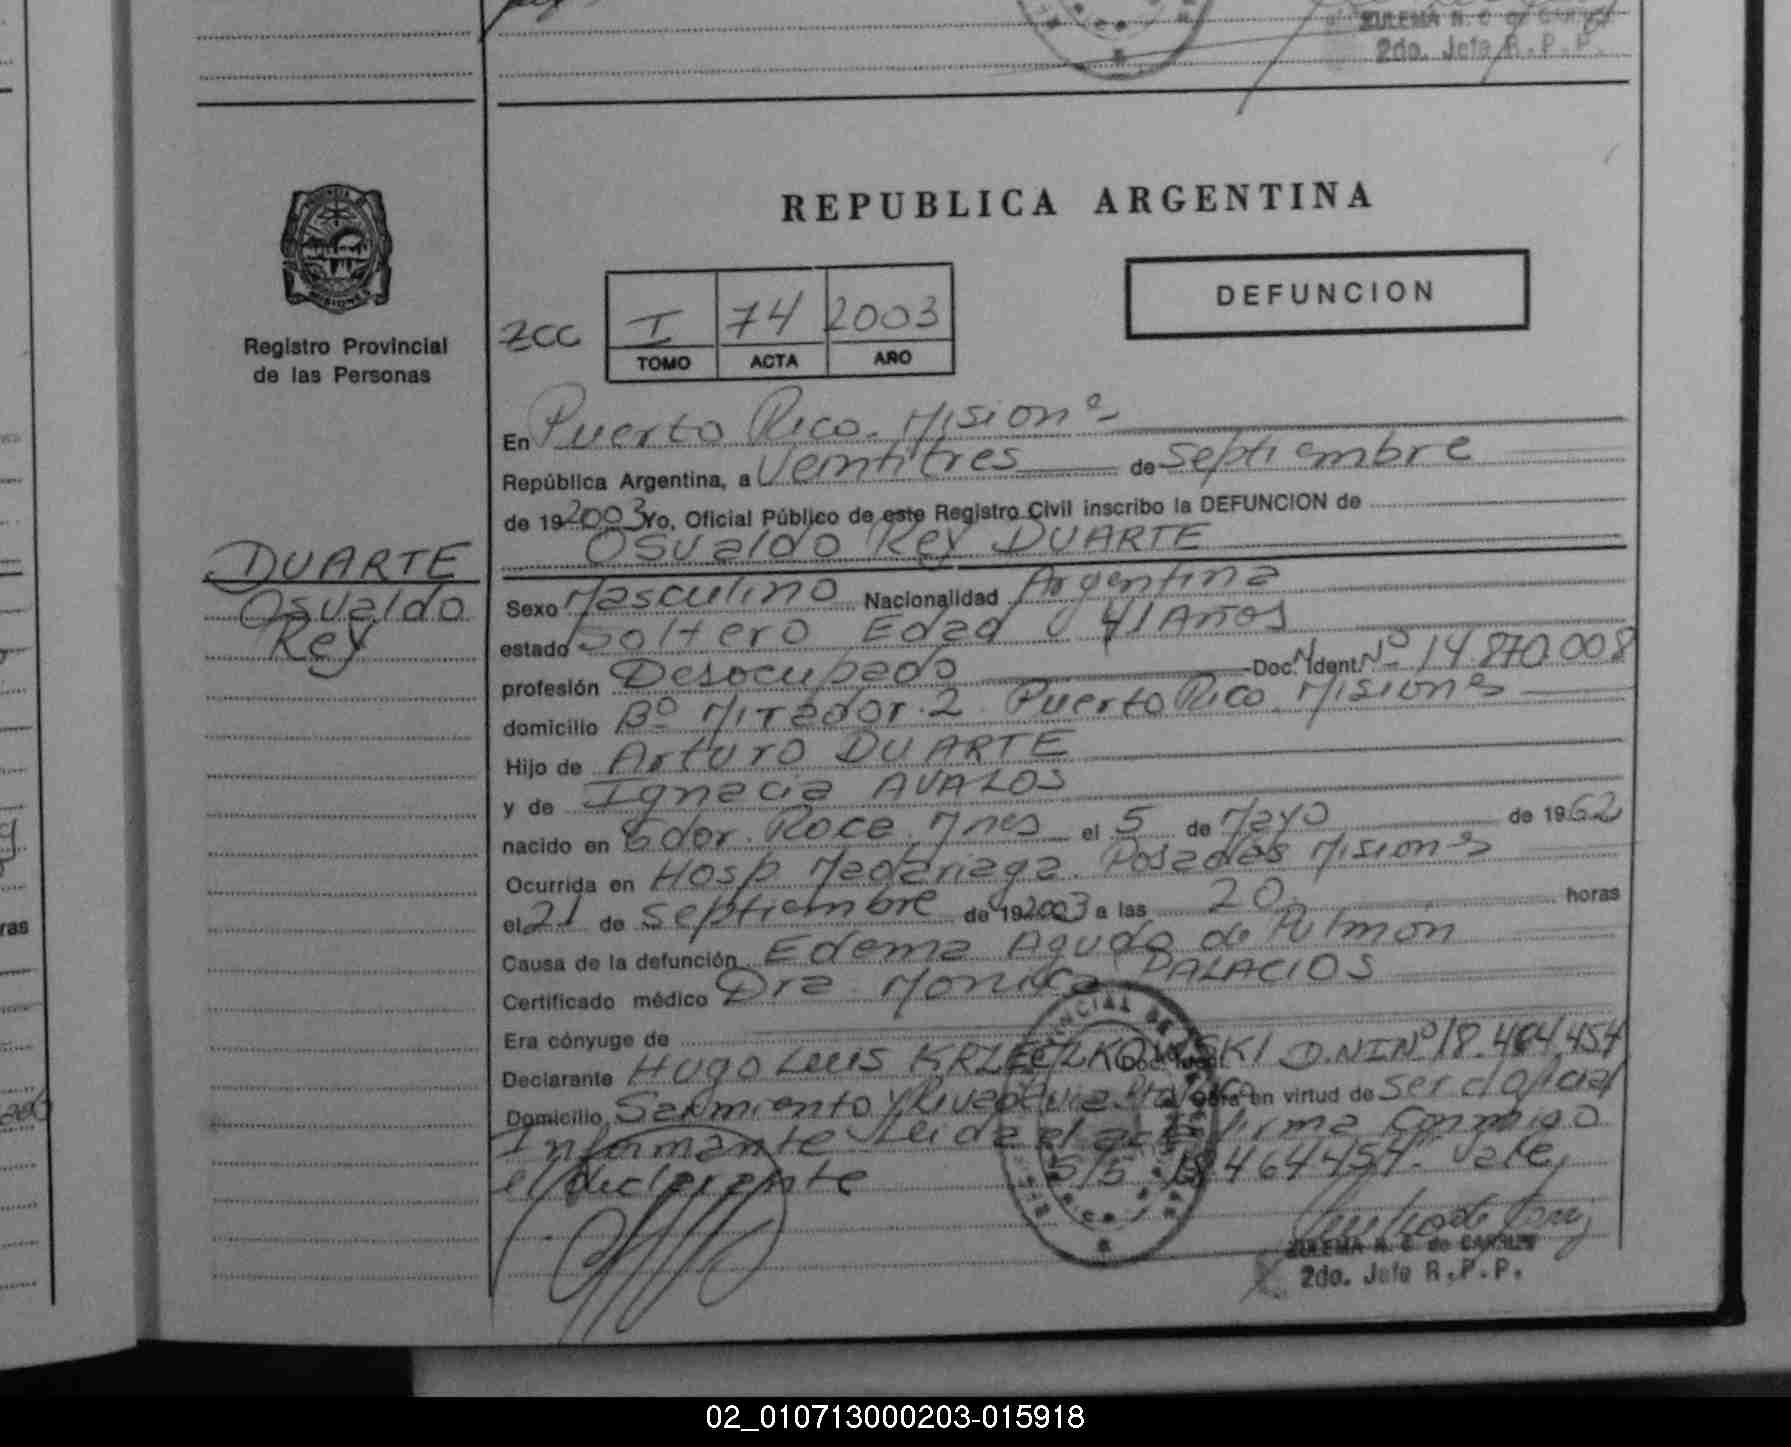 ZULEMA N. C de
2do. Jefe R.P.P.
REPUBLICA ARGENTINA
DEFUNCION
PROVINCIA DE MISIONES
Registro Provincial
de las Personas
ZCC I 74 2003
TOMO ACTA AÑO
En Puerto Rico. Misiones
República Argentina, a Veintitres de Septiembre
de 19 2003 Yo, Oficial Público de este Registro Civil inscribo la DEFUNCION de
Osvaldo Rey DUARTE
DUARTE
Osvaldo
Rey
Sexo Masculino Nacionalidad Argentina
estado Soltero Edad 41 Años
profesión Desocupado Doc. N. Ident. Nº 14.870.008
domicilio Bº Mirador 2 Puerto Rico Misiones
Hijo de Arturo DUARTE
y de Ignacia AVALOS
nacido en Gdor. Roca Mnes el 5 de Mayo de 19 62
Ocurrida en Hosp. Madariaga. Posadas Misiones
el 21 de Septiembre de 19 2003 a las 20 horas
Causa de la defunción Edema Agudo de Pulmón
Certificado médico Dra. Monica PALACIOS
Era cónyuge de
Declarante Hugo Luis D.N.I Nº 18.464.454
Domicilio Sarmiento y Rivadavia Pto Rico Obra en virtud de ser el oficial
Informante Leida el acta firma Conmigo
el declarante S/S 18.464454. Vale
ZULEMA N. C de
2do. Jefe R.P.P.
02_010713000203-015918